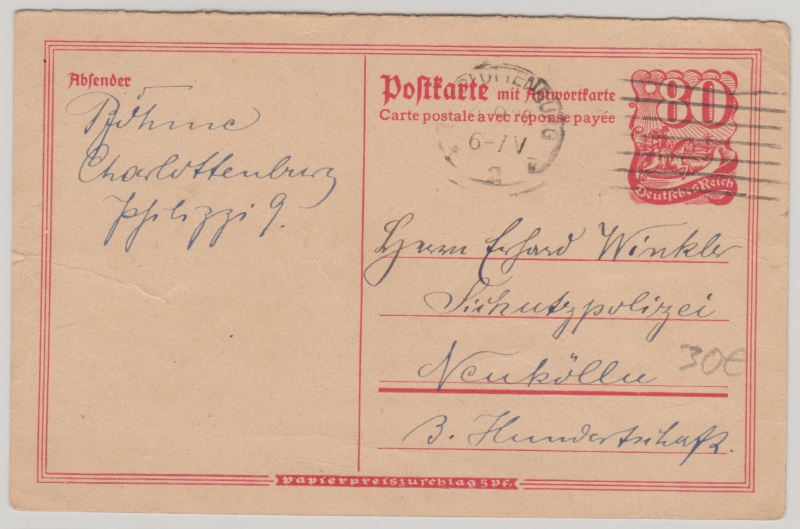 Absender
Böhme
Charlottenburg
Philippi 9.
Postkarte mit Antwortkarte
Carte postale avec réponse payée
CHARLOTTENBURG
6-7 V
2
80
Deutsches Reich
Herrn Erhard Winkler
Schutzpolizei
Neukölln
30€
3. Hundertschaft.
Papierpreiszuschlag 5 Pf.